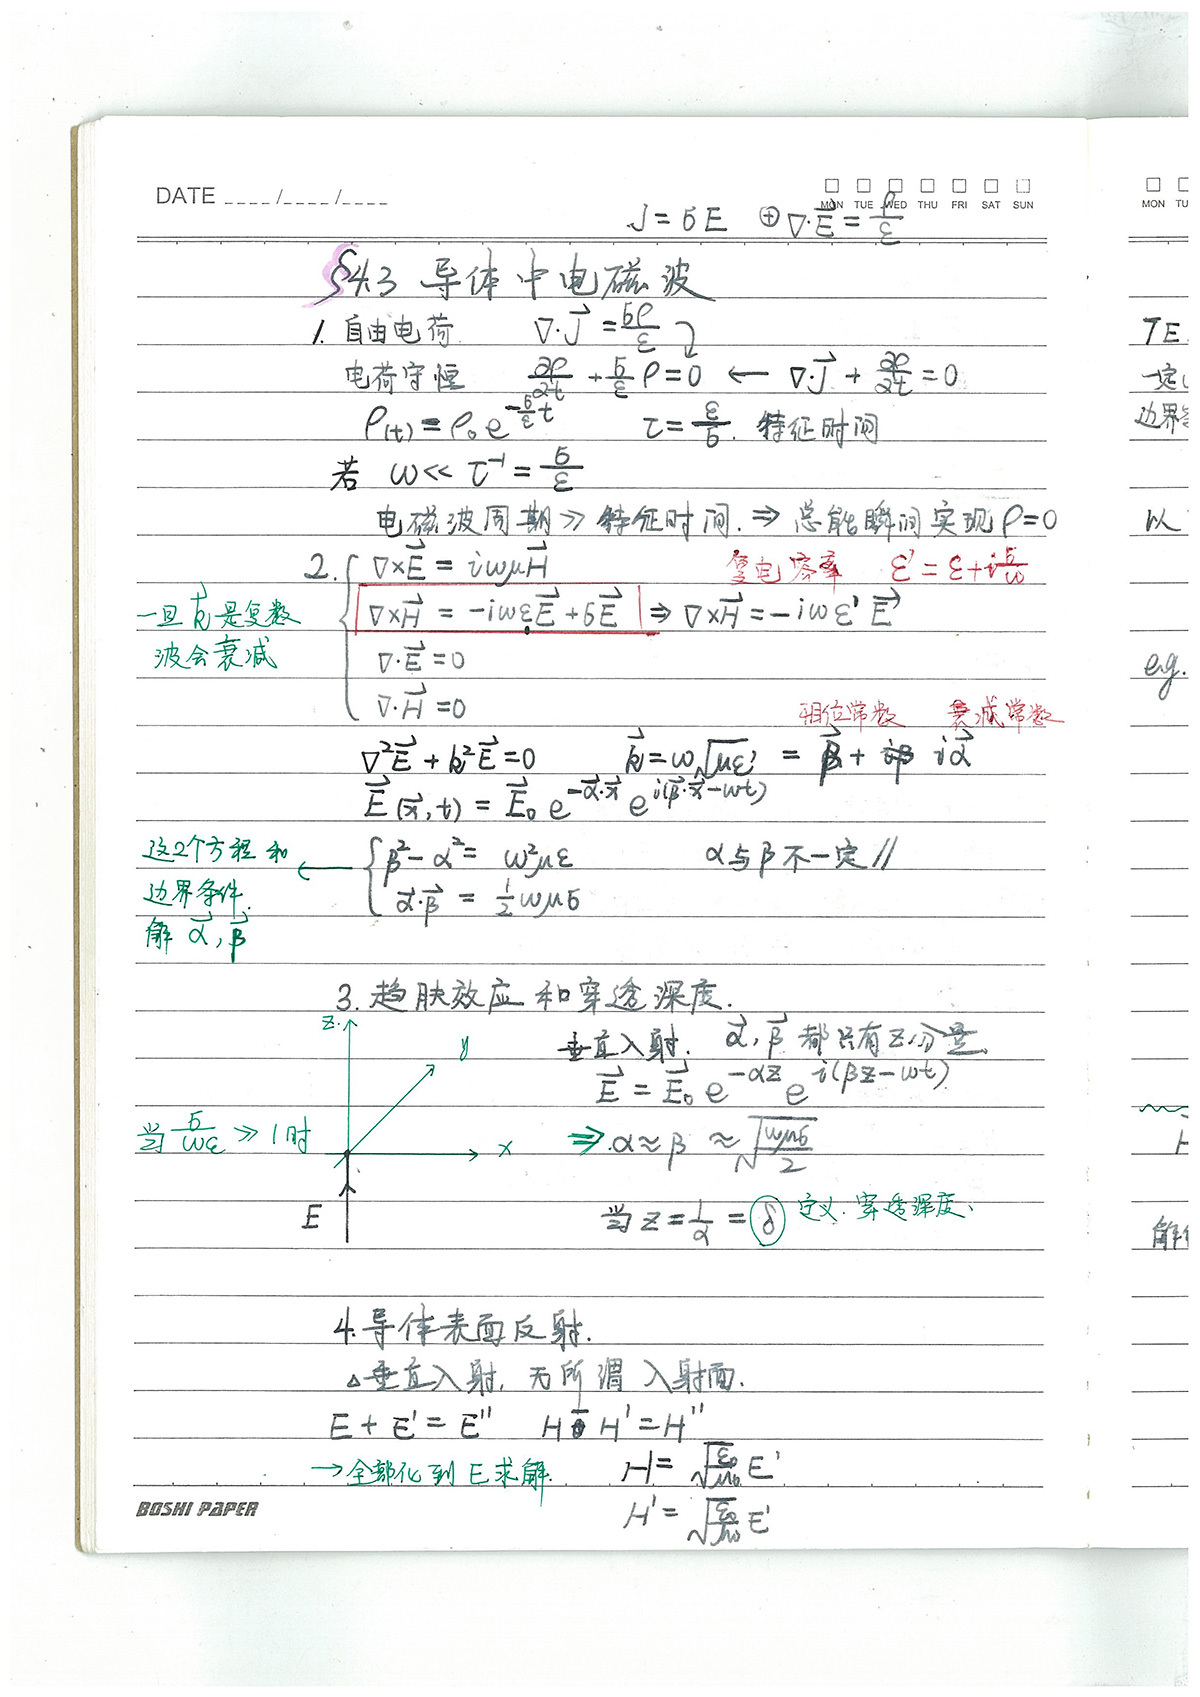 DATE ____ /____ /____
MON TUE WED THU FRI SAT SUN
J = σE ⊕ ∇·E⃗ = ρ/ε
§4.3 导体中电磁波
1. 自由电荷 ∇·J⃗ = σρ/ε
电荷守恒 ∂ρ/∂t + σ/ε ρ = 0 ← ∇·J⃗ + ∂ρ/∂t = 0
ρ(t) = ρ₀ e^(-σ/ε t) τ = ε/σ. 特征时间
若 ω << τ⁻¹ = σ/ε
电磁波周期 >> 特征时间. ⇒ 总能瞬间实现 ρ=0
2. ∇×E⃗ = iωμH⃗ 复电容率 ε' = ε + i σ/ω
∇×H⃗ = -iωεE⃗ + σE⃗ ⇒ ∇×H⃗ = -iωε' E⃗
一旦 k⃗ 是复数
波会衰减
∇·E⃗ = 0
∇·H⃗ = 0
相位常数 衰减常数
∇²E⃗ + k²E⃗ = 0 k⃗ = ω√(με') = β⃗ + iα⃗
E⃗(x⃗, t) = E⃗₀ e^(-α⃗·x⃗) e^(i(β⃗·x⃗ - ωt))
这2个方程和
边界条件.
解 α⃗, β⃗
β² - α² = ω²με α与β不一定//
α⃗·β⃗ = 1/2 ωμσ
3. 趋肤效应和穿透深度.
z.
y
x
E
垂直入射. α⃗, β⃗ 都只有z分量.
E⃗ = E⃗₀ e^(-αz) e^(i(βz-ωt))
当 σ/ωε >> 1时 ⇒ α ≈ β ≈ √(ωμσ/2)
当 z = 1/α = δ 定义. 穿透深度.
4. 导体表面反射.
△垂直入射, 无所谓入射面.
E + E' = E'' H - H' = H''
→ 全部化到 E 求解. H = √(ε₀/μ₀) E'
H' = √(ε₀/μ₀) E'
BOSHI PAPER
MON
TE.
一定
边界
以
e.g.
解